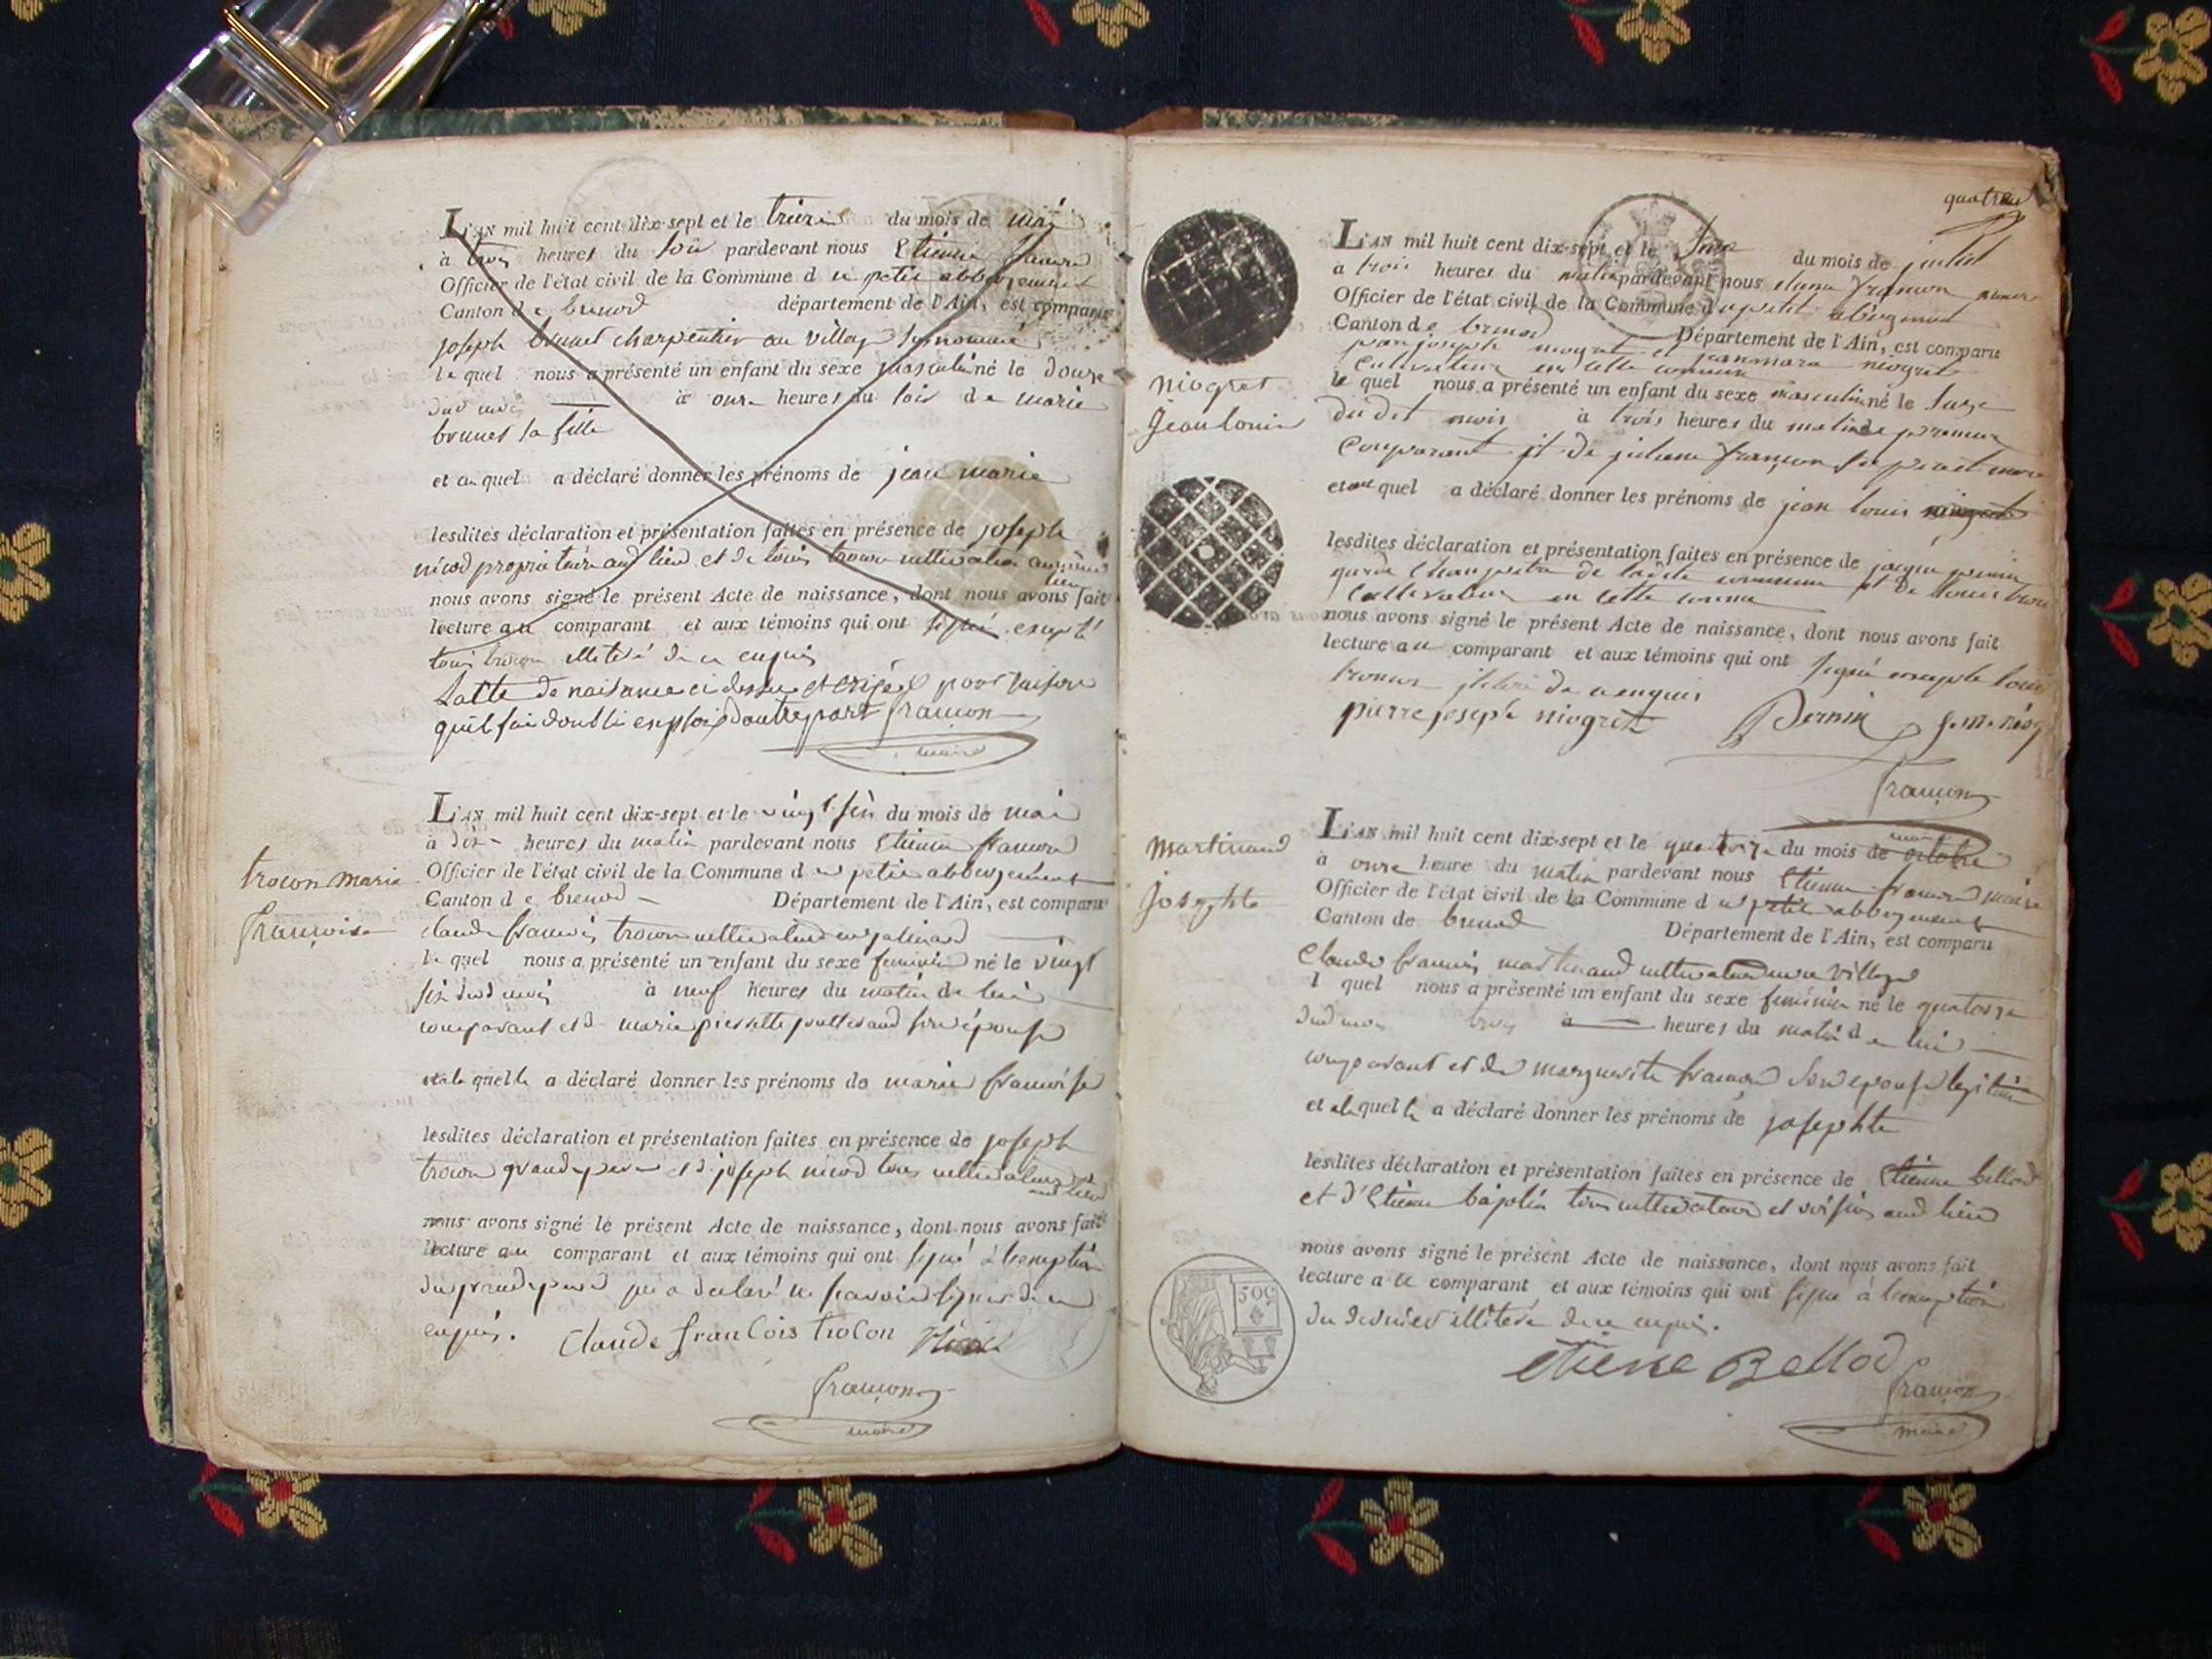 L'AN mil huit cent dix-sept et le treize du mois de mai
à trois heures du soir pardevant nous Etienne françon
Officier de l'état civil de la Commune d u petit abbergement
Canton d e brenod département de l'Ain, est comparu
joseph brunet charpentier au village
le quel nous a présenté un enfant du sexe masculin né le douze
dud mois à onze heures du soir de marie
brunet sa fille
et au quel a déclaré donner les prénoms de jean marie
lesdites déclaration et présentation faites en présence de joseph
nicod propriétaire aud lieu et de louis trocon cultivateur au même
lieu
nous avons signé le présent Acte de naissance, dont nous avons fait
lecture au comparant et aux témoins qui ont signé excepté
louis trocon de ce enquis
Lacte de naissance ci dessus et
quil fai double emploi d'autre part françon
maire
trocon marie
françoise
L'AN mil huit cent dix-sept et le vingt six du mois de mai
à dix heures du matin pardevant nous Etienne françon
Officier de l'état civil de la Commune d u petit abbergement
Canton d e brenod Département de l'Ain, est comparu
claude françois trocon cultivateur
le quel nous a présenté un enfant du sexe feminin né le vingt
six dud mois à neuf heures du matin de lui
comparant et de marie pierrette son épouse
et a la quelle a déclaré donner les prénoms de marie françoise
lesdites déclaration et présentation faites en présence de joseph
trocon grand pere et d joseph nicod tous cultivateurs
aud lieu
nous avons signé le présent Acte de naissance, dont nous avons fait
lecture au comparant et aux témoins qui ont signé à l'exeption
du grand pere qui a declaré ne scavoir signer de ce
enquis. Claude francois trocon
françon
maire
quatre
niogret
jean louis
L'AN mil huit cent dix-sept et le du mois de juillet
à trois heures du matin pardevant nous françon maire
Officier de l'état civil de la Commune du petit abergement
Canton de brenod Département de l'Ain, est comparu
joseph niogret et jean marie niogret
cultivateurs en cette commune
le quel nous a présenté un enfant du sexe masculin né le
du dit mois à trois heures du matin de premier
comparant et de juliene françon
et au quel a déclaré donner les prénoms de jean louis
lesdites déclaration et présentation faites en présence de
garde champetre de ladite commune et de louis
cultivateur en cette
nous avons signé le présent Acte de naissance, dont nous avons fait
lecture au comparant et aux témoins qui ont signé excepté louis
de ce enquis
pierre joseph niogret Pernin j. m. niog
françon
maire
martinand
josephte
L'AN mil huit cent dix-sept et le quatorze du mois de octobre
à onze heure du matin pardevant nous Etienne françon maire
Officier de l'état civil de la Commune d u petit abbergement
Canton de brenod Département de l'Ain, est comparu
Claude françois martinand cultivateur village
l quel nous a présenté un enfant du sexe feminin né le quatorze
dud mois trois à heures du matin de lui
comparant et de marguerite françon son epouse legitime
et a la quelle a déclaré donner les prénoms de josephte
lesdites déclaration et présentation faites en présence de Etienne bellod
et d'Etienne tous cultivateurs et voisins aud lieu
nous avons signé le présent Acte de naissance, dont nous avons fait
lecture a u comparant et aux témoins qui ont signé à l'exception
du dernier de ce enquis.
50C
etiene Bellod
françon
maire